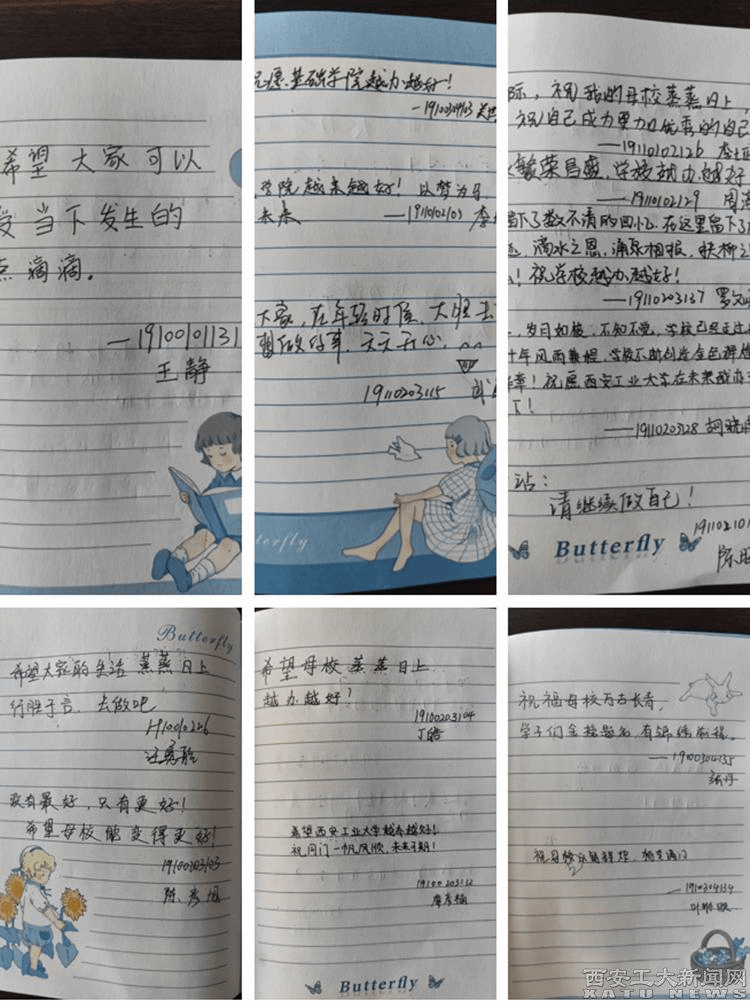 希望大家可以
受当下发生的
点滴滴。
—19100101131
王静
祝愿基础学院越办越好！
—19100304103
学院越来越好！以梦为马
未来 —19110102103 李
大家，在年轻时候，大胆去
做好事，天天开心，
19110203115
际，祝我的母校蒸蒸日上，
祝自己成为更加优秀的自己
—19110102126 李
繁荣昌盛，学校越办越好
—19110102129 周
留下了数不清的回忆，在这里留下了
滴水之恩，涌泉相报，
！祝学校越办越好！
—19110203137 罗文
，岁月如梭，不知不觉，学校已经走过
十年风雨兼程，学校不断创造金色辉煌
章！祝愿西安工业大学在未来越办
了！
—19110203128 胡晓
站：
请继续做自己！
191102101
陈
Butterfly
Butterfly
希望大家的生活蒸蒸日上
行胜于言，去做吧
没有最好，只有更好！
希望母校能变得更好！
19100203103
陈彦旭
希望母校蒸蒸日上
越办越好！
19100203104
丁皓
希望西安工业大学越来越好！
祝同门一帆风顺，未来可期！
19100203112
廖彦楠
Butterfly
祝福母校万古长青，
学子们金榜题名，有锦绣前程。
—19100304135
张丹
祝母校
—1910304134
西安工大新闻网
XATU NEWS